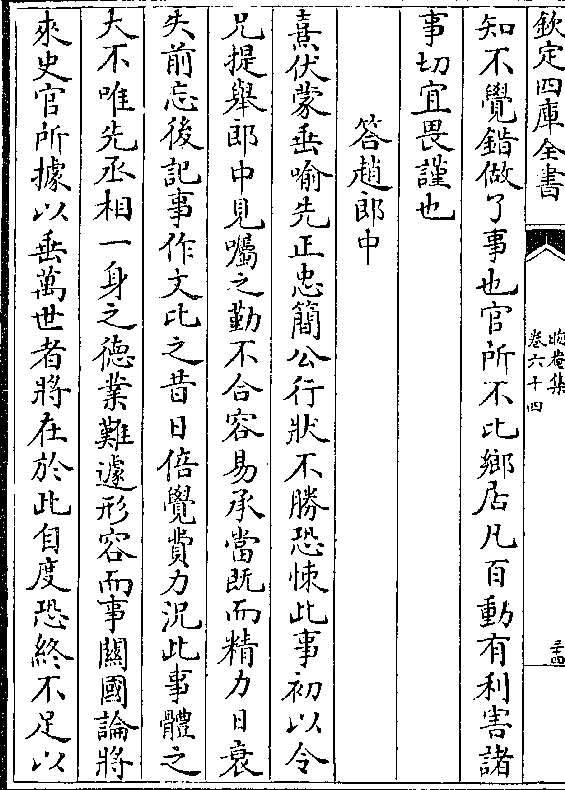 欽定四庫全書
晦菴集
卷六十四
三十四
知不覺錯做了事也官所不比鄉居凡百動有利害諸
事切宜畏謹也
答趙郎中
熹伏蒙垂喻先正忠簡公行狀不勝恐悚此事初以令
兄提舉郎中見囑之勤不合容易承當既而精力日衰
失前忘後記事作文比之昔日倍覺費力況此事體之
大不唯先丞相一身之德業難遽形容而事關國論將
來史官所據以垂萬世者將在於此自度恐終不足以